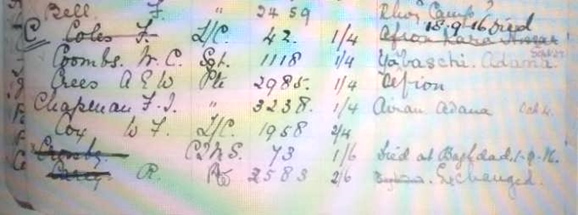 Bell F. " 2459 Rhos Camp
C Coles F. L/C. 42. 1/4 Afion Kara Hissar 18.9.16 died
Coombs. W. C. Sgt. 1118 1/4 Yabaschi. Adana.
Crees A E W Pte 2985. 1/4 Afion
Chapman F. J. " 3238. 1/4 Adana
Cox W F. L/C. 1958 2/4
Crosby. C.Q.M.S. 73 1/6 Died at Baghdad. 1.9.16.
R. Pte 2583 2/6 Exchanged.